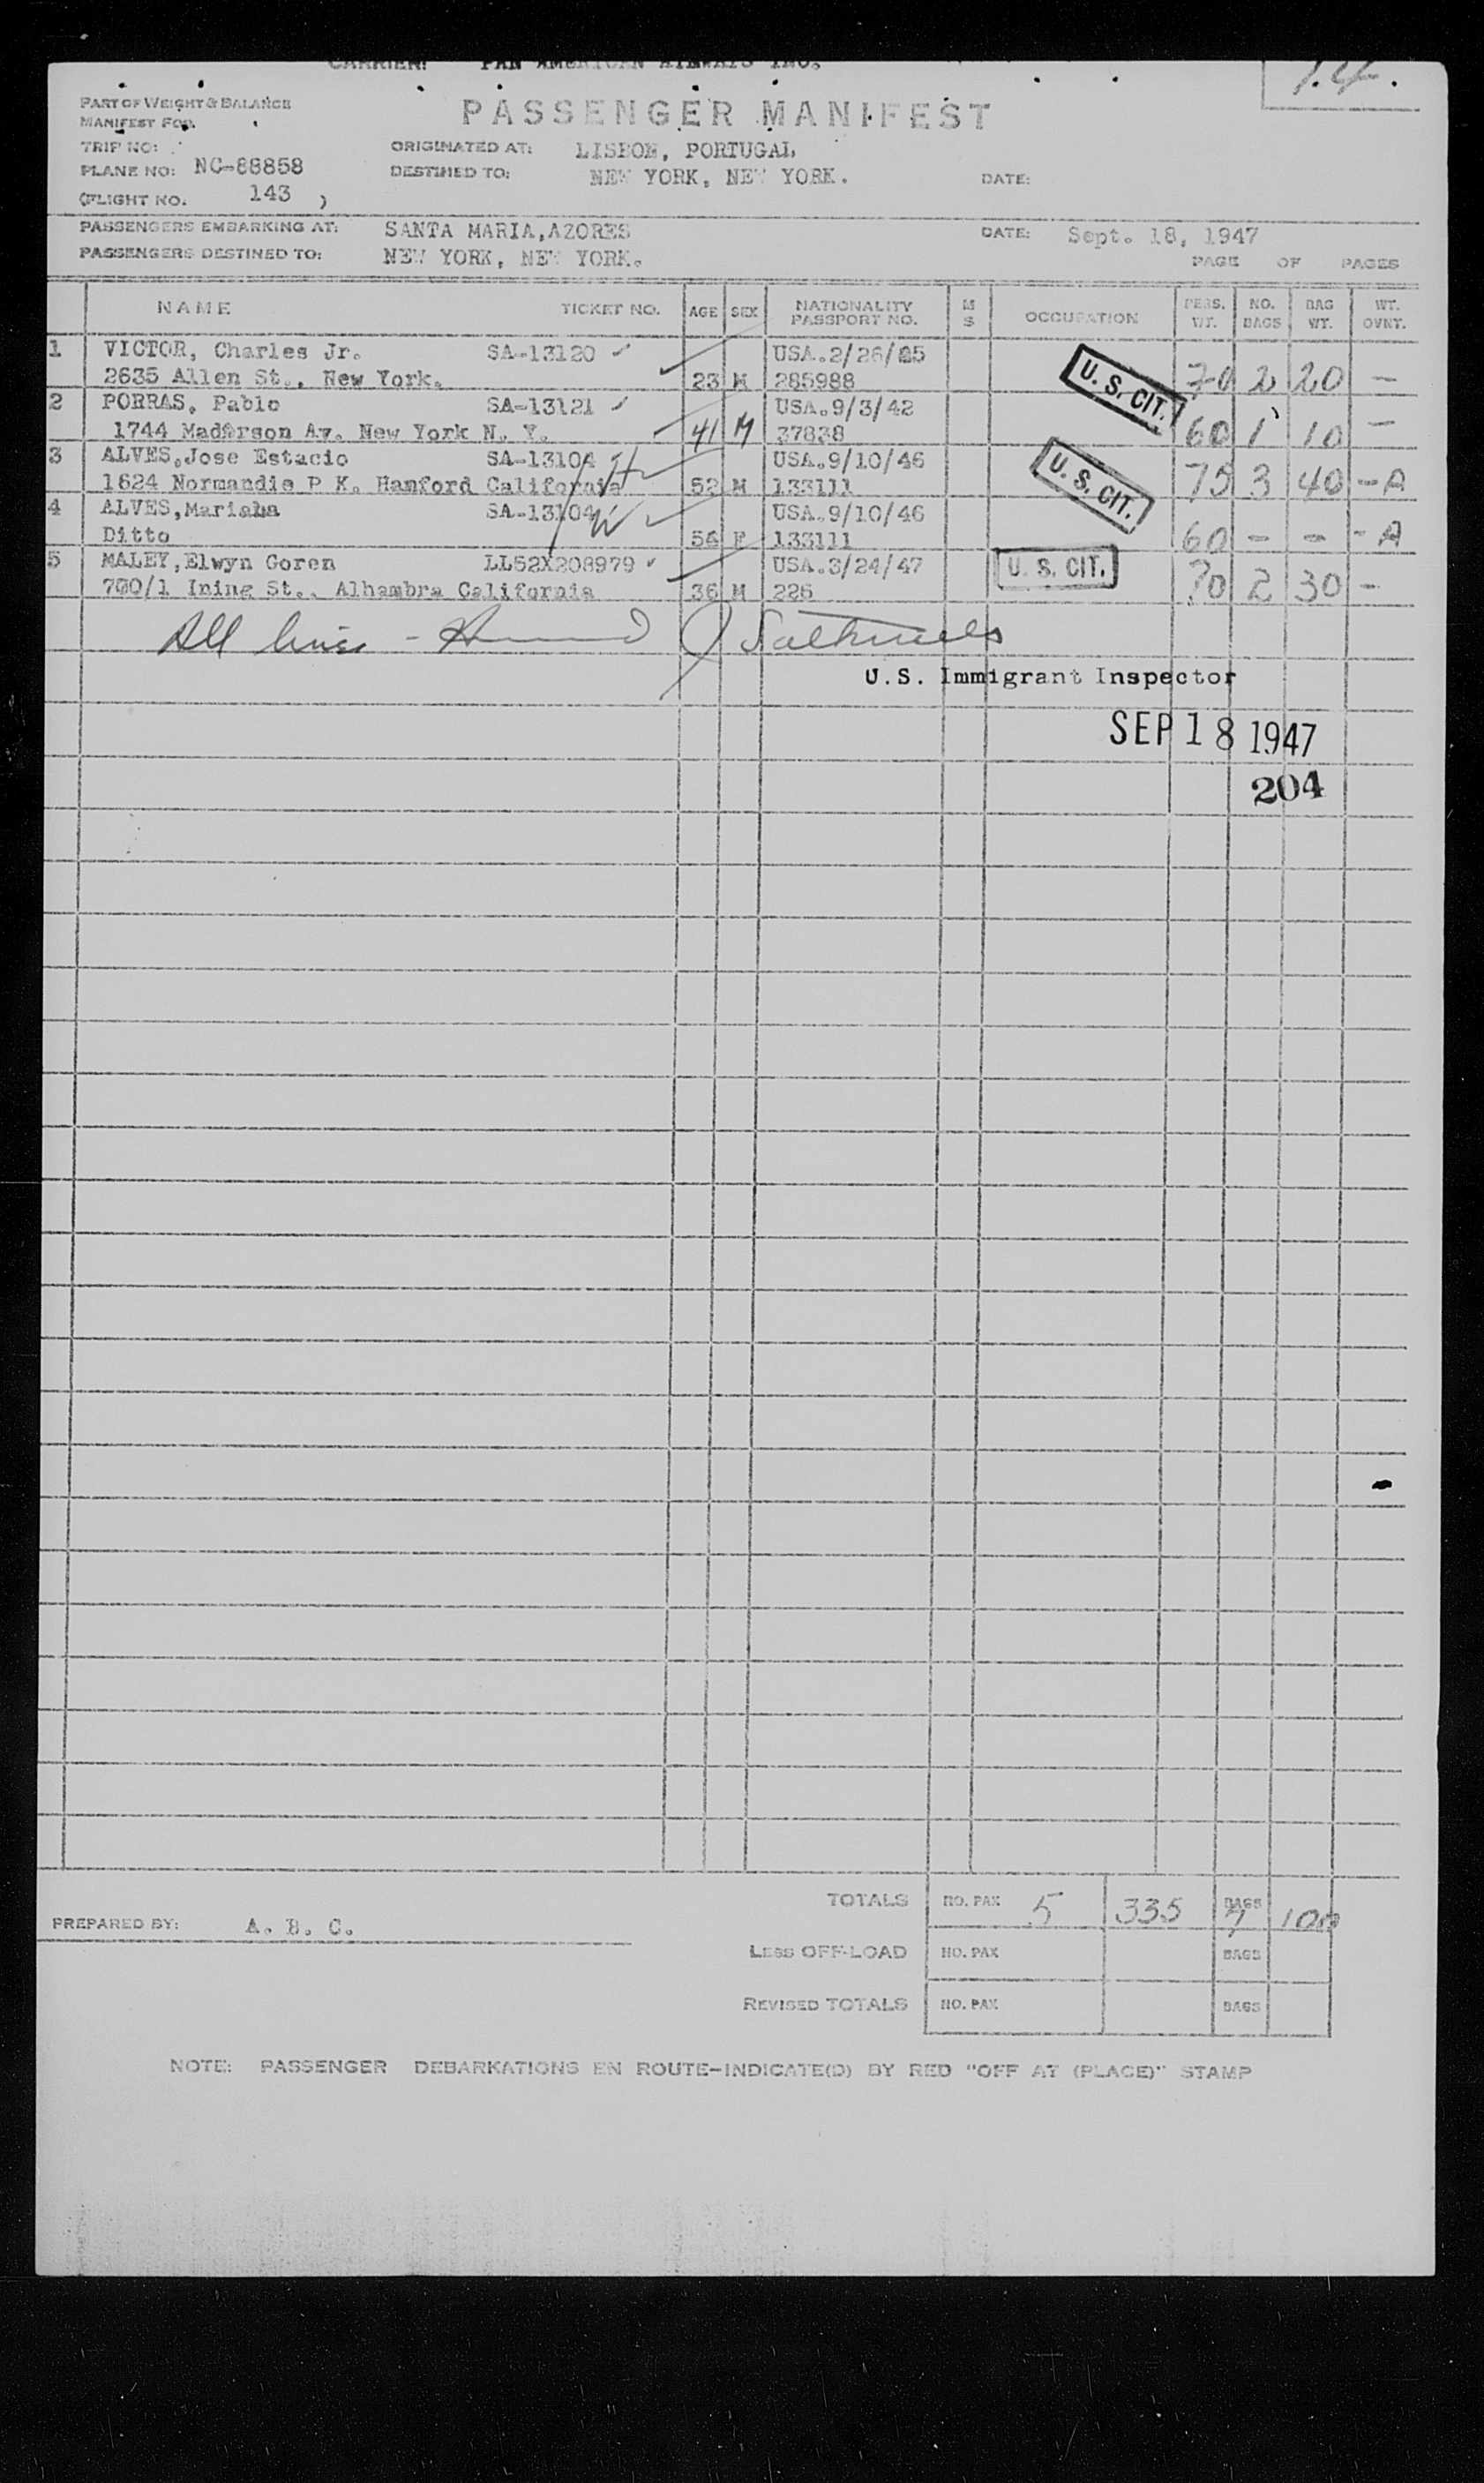 CARRIER: PAN AMERICAN AIRWAYS INC.
PART OF WEIGHT & BALANCE
MANIFEST FOR
PASSENGER MANIFEST
TRIP NO:
ORIGINATED AT: LISBON, PORTUGAL
PLANE NO: NC-88858
DESTINED TO: NEW YORK, NEW YORK.
DATE:
(FLIGHT NO. 143 )
PASSENGERS EMBARKING AT: SANTA MARIA,AZORES
DATE: Sept. 18, 1947
PASSENGERS DESTINED TO: NEW YORK, NEW YORK.
PAGE OF PAGES
NAME TICKET NO. AGE SEX NATIONALITY PASSPORT NO. M S OCCUPATION PERS. WT. NO. BAGS BAG WT. WT. OVNT.
1 VICTOR, Charles Jr. SA-13120 USA.2/26/
2635 Allen St., New York. 23 M 285988 U. S. CIT. 70 2 20 -
2 PORRAS, Pablo SA-13121 USA.9/3/42
1744 Av. New York N. Y. 41 M 37838 60 1 10 -
3 ALVES,Jose Estacio SA-13104 USA.9/10/46
1624 Normandie P K. Hanford California 52 M 133111 U. S. CIT. 75 3 40 - A
4 ALVES, SA-13104 USA.9/10/46
Ditto F 133111 60 - - - A
5 MALEY,Elwyn Goren LL52X208979 USA.3/24/47
Ining St., Alhambra California 36 M 226 U. S. CIT. 70 2 30 -
All lines -
U.S. Immigrant Inspector
SEP 18 1947
204
TOTALS NO. PAX 5 335 BAGS 100
PREPARED BY: A. B. C.
LESS OFF-LOAD NO. PAX BAGS
REVISED TOTALS NO. PAX BAGS
NOTE: PASSENGER DEBARKATIONS EN ROUTE-INDICATE(D) BY RED "OFF AT (PLACE)" STAMP